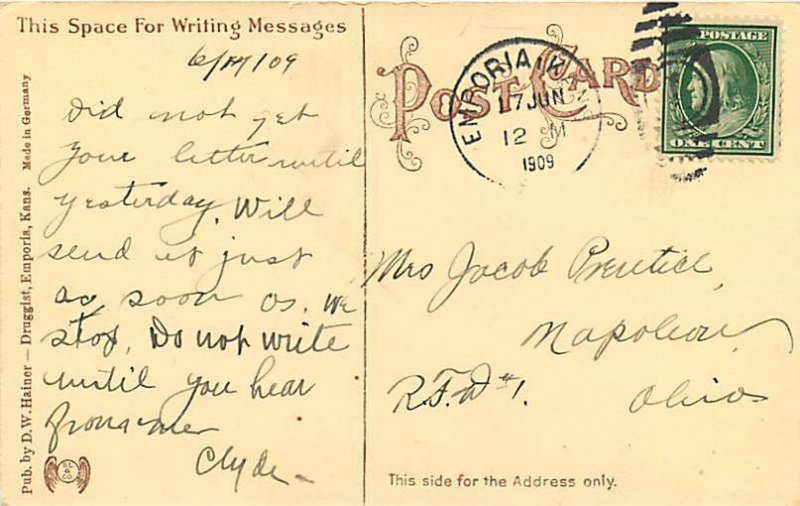 This Space For Writing Messages
6/17/09
Did not get
your letter until
yesterday, Will
send it just
as soon as. we
stop, Do not write
until you hear
from me
Clyde
Pub. by D.W. Hainer — Druggist, Emporia, Kans. Made in Germany
POST CARD
EMPORIA, KAN
17 JUN
12 M
1909
POSTAGE
ONE CENT
Mrs Jacob Prentice,
Napoleon,
R.F.D #1. Ohio
This side for the Address only.